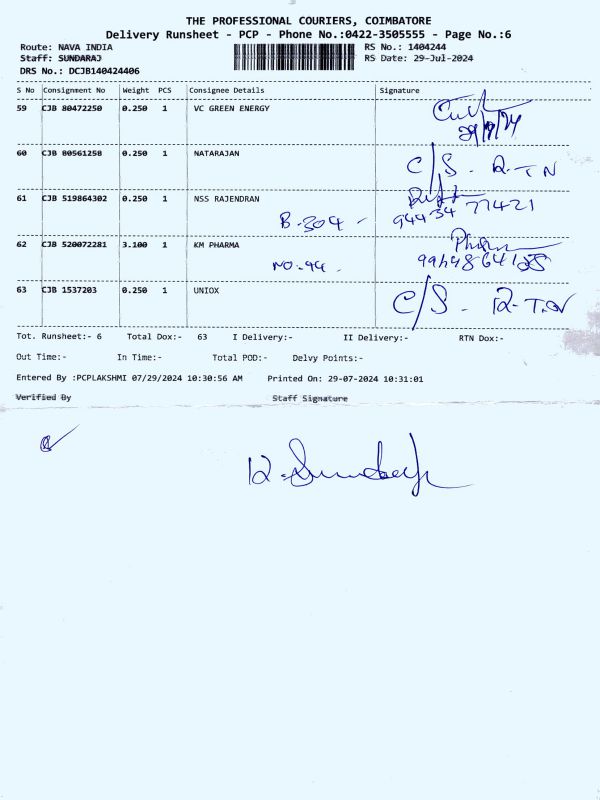 THE PROFESSIONAL COURIERS, COIMBATORE
Delivery Runsheet - PCP - Phone No.:0422-3505555 - Page No.:6
Route: NAVA INDIA RS No.: 1404244
Staff: SUNDARAJ RS Date: 29-Jul-2024
DRS No.: DCJB140424406
S No Consignment No Weight PCS Consignee Details Signature
59 CJB 80472250 0.250 1 VC GREEN ENERGY
29/7/24
60 CJB 80561258 0.250 1 NATARAJAN C/S - R-TN
61 CJB 519864302 0.250 1 NSS RAJENDRAN
B-304 - 94434 77421
62 CJB 520072281 3.100 1 KM PHARMA
NO-94.
63 CJB 1537203 0.250 1 UNIOX C/S - R-T.N
Tot. Runsheet:- 6 Total Dox:- 63 I Delivery:- II Delivery:- RTN Dox:-
Out Time:- In Time:- Total POD:- Delvy Points:-
Entered By :PCPLAKSHMI 07/29/2024 10:30:56 AM Printed On: 29-07-2024 10:31:01
Verified By Staff Signature